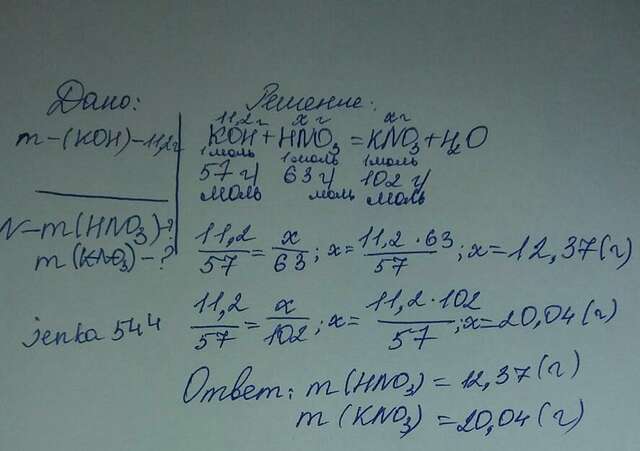 Дано:
m-(KOH)-11,2г
N-m(HNO3)-?
m(KNO3)-?
jenka 544
Решение:
11,2г x г x г
KOH+HNO3=KNO3+H2O
1моль 1моль 1моль
57 г/ 63 г/ 102 г/
моль моль моль
11,2/57=x/63; x=11,2·63/57; x=12,37(г)
11,2/57=x/102; x=11,2·102/57; x=20,04(г)
Ответ: m(HNO3)=12,37(г)
m(KNO3)=20,04(г)